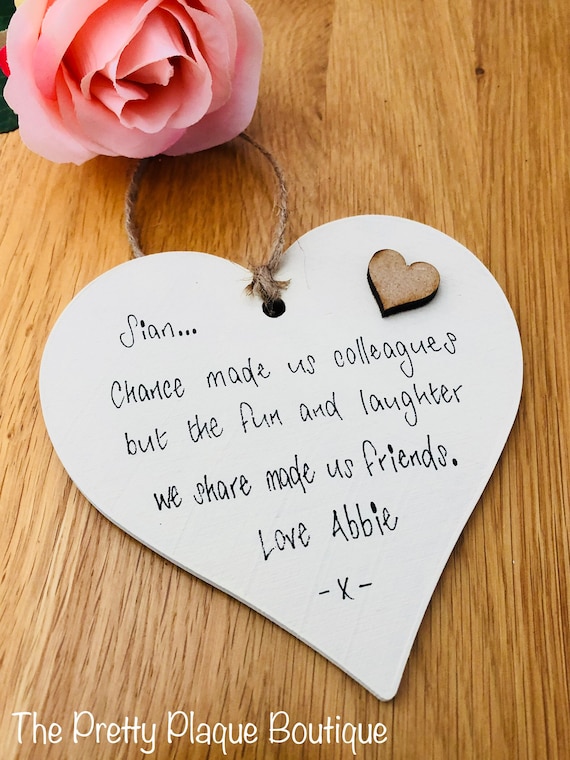 Sian...
Chance made us colleagues
but the fun and laughter
we share made us friends.
Love Abbie
-x-
The Pretty Plaque Boutique